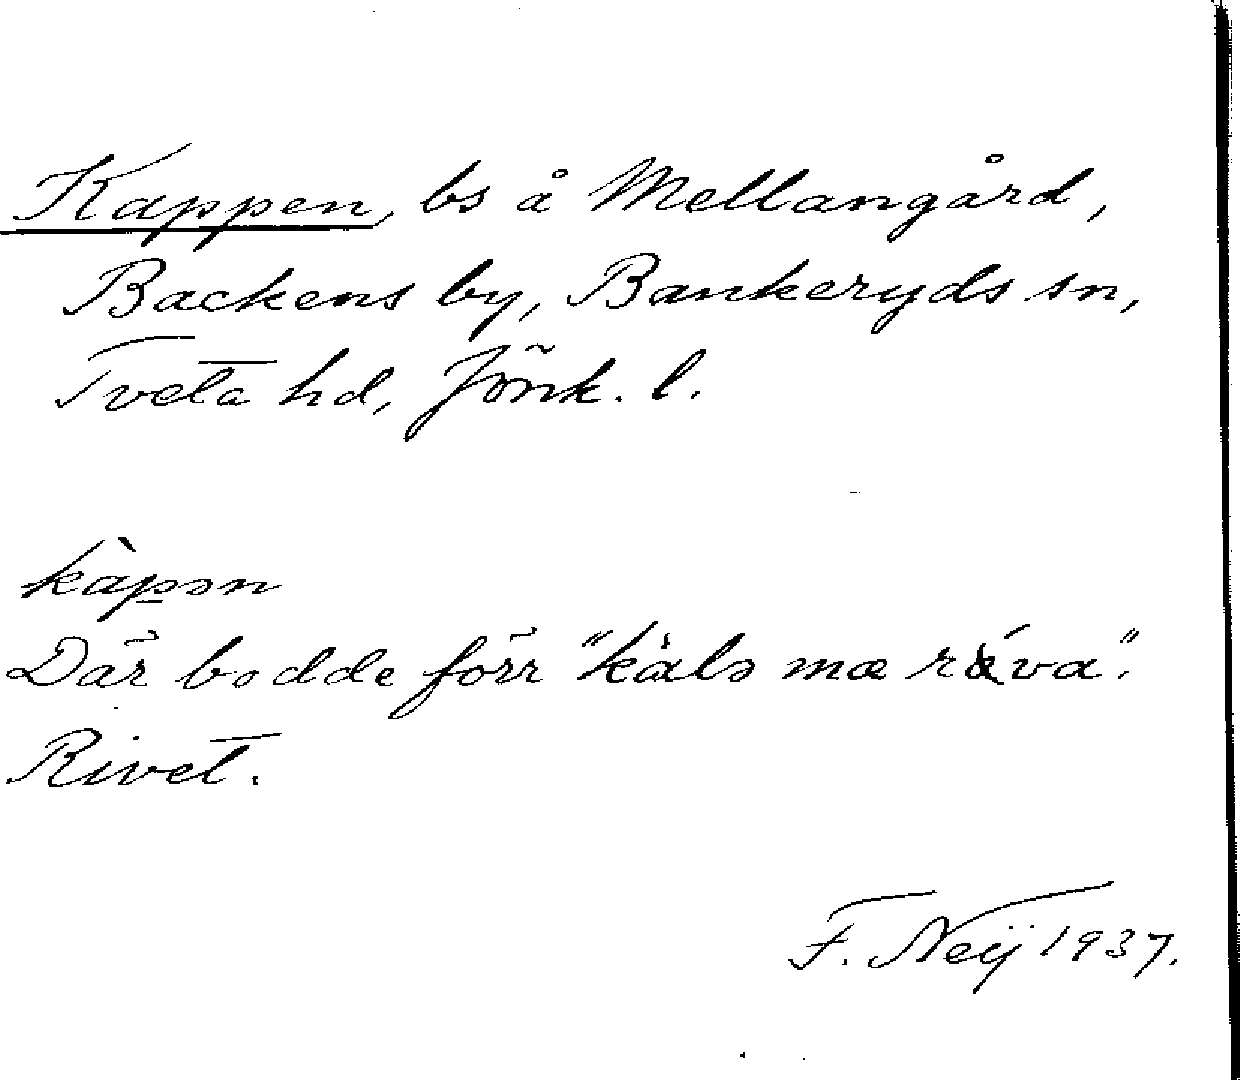 Kappen, bs å Mellangård,
Backens by, Bankeryds sn,
Tveta hd, Jönk. l.
kàpən
Där bodde förr "kälə mæ räva".
Rivet.
F. Neij 1937.